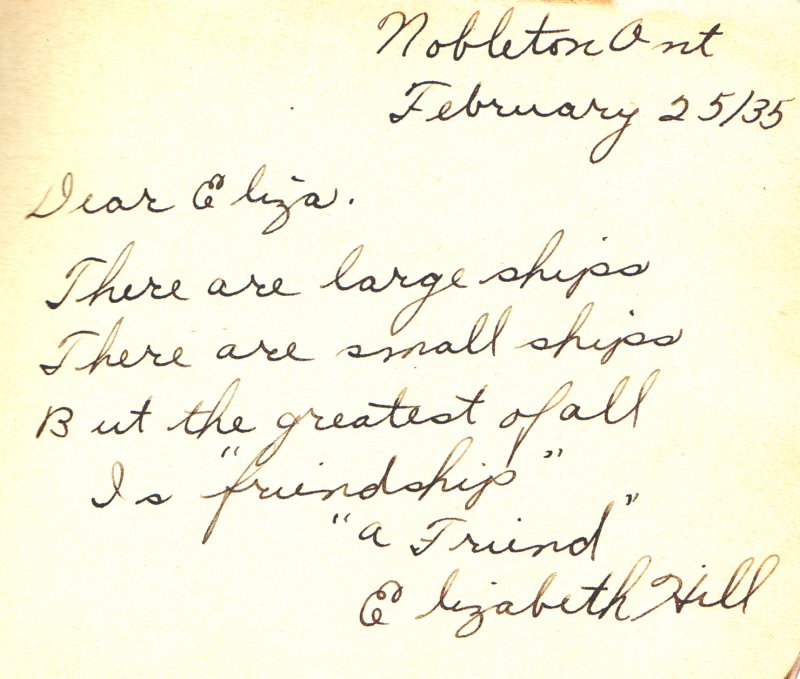 Nobleton Ont
February 25/35
Dear Eliza.
There are large ships
There are small ships
But the greatest of all
Is "friendship"
"a Friend"
Elizabeth Hill